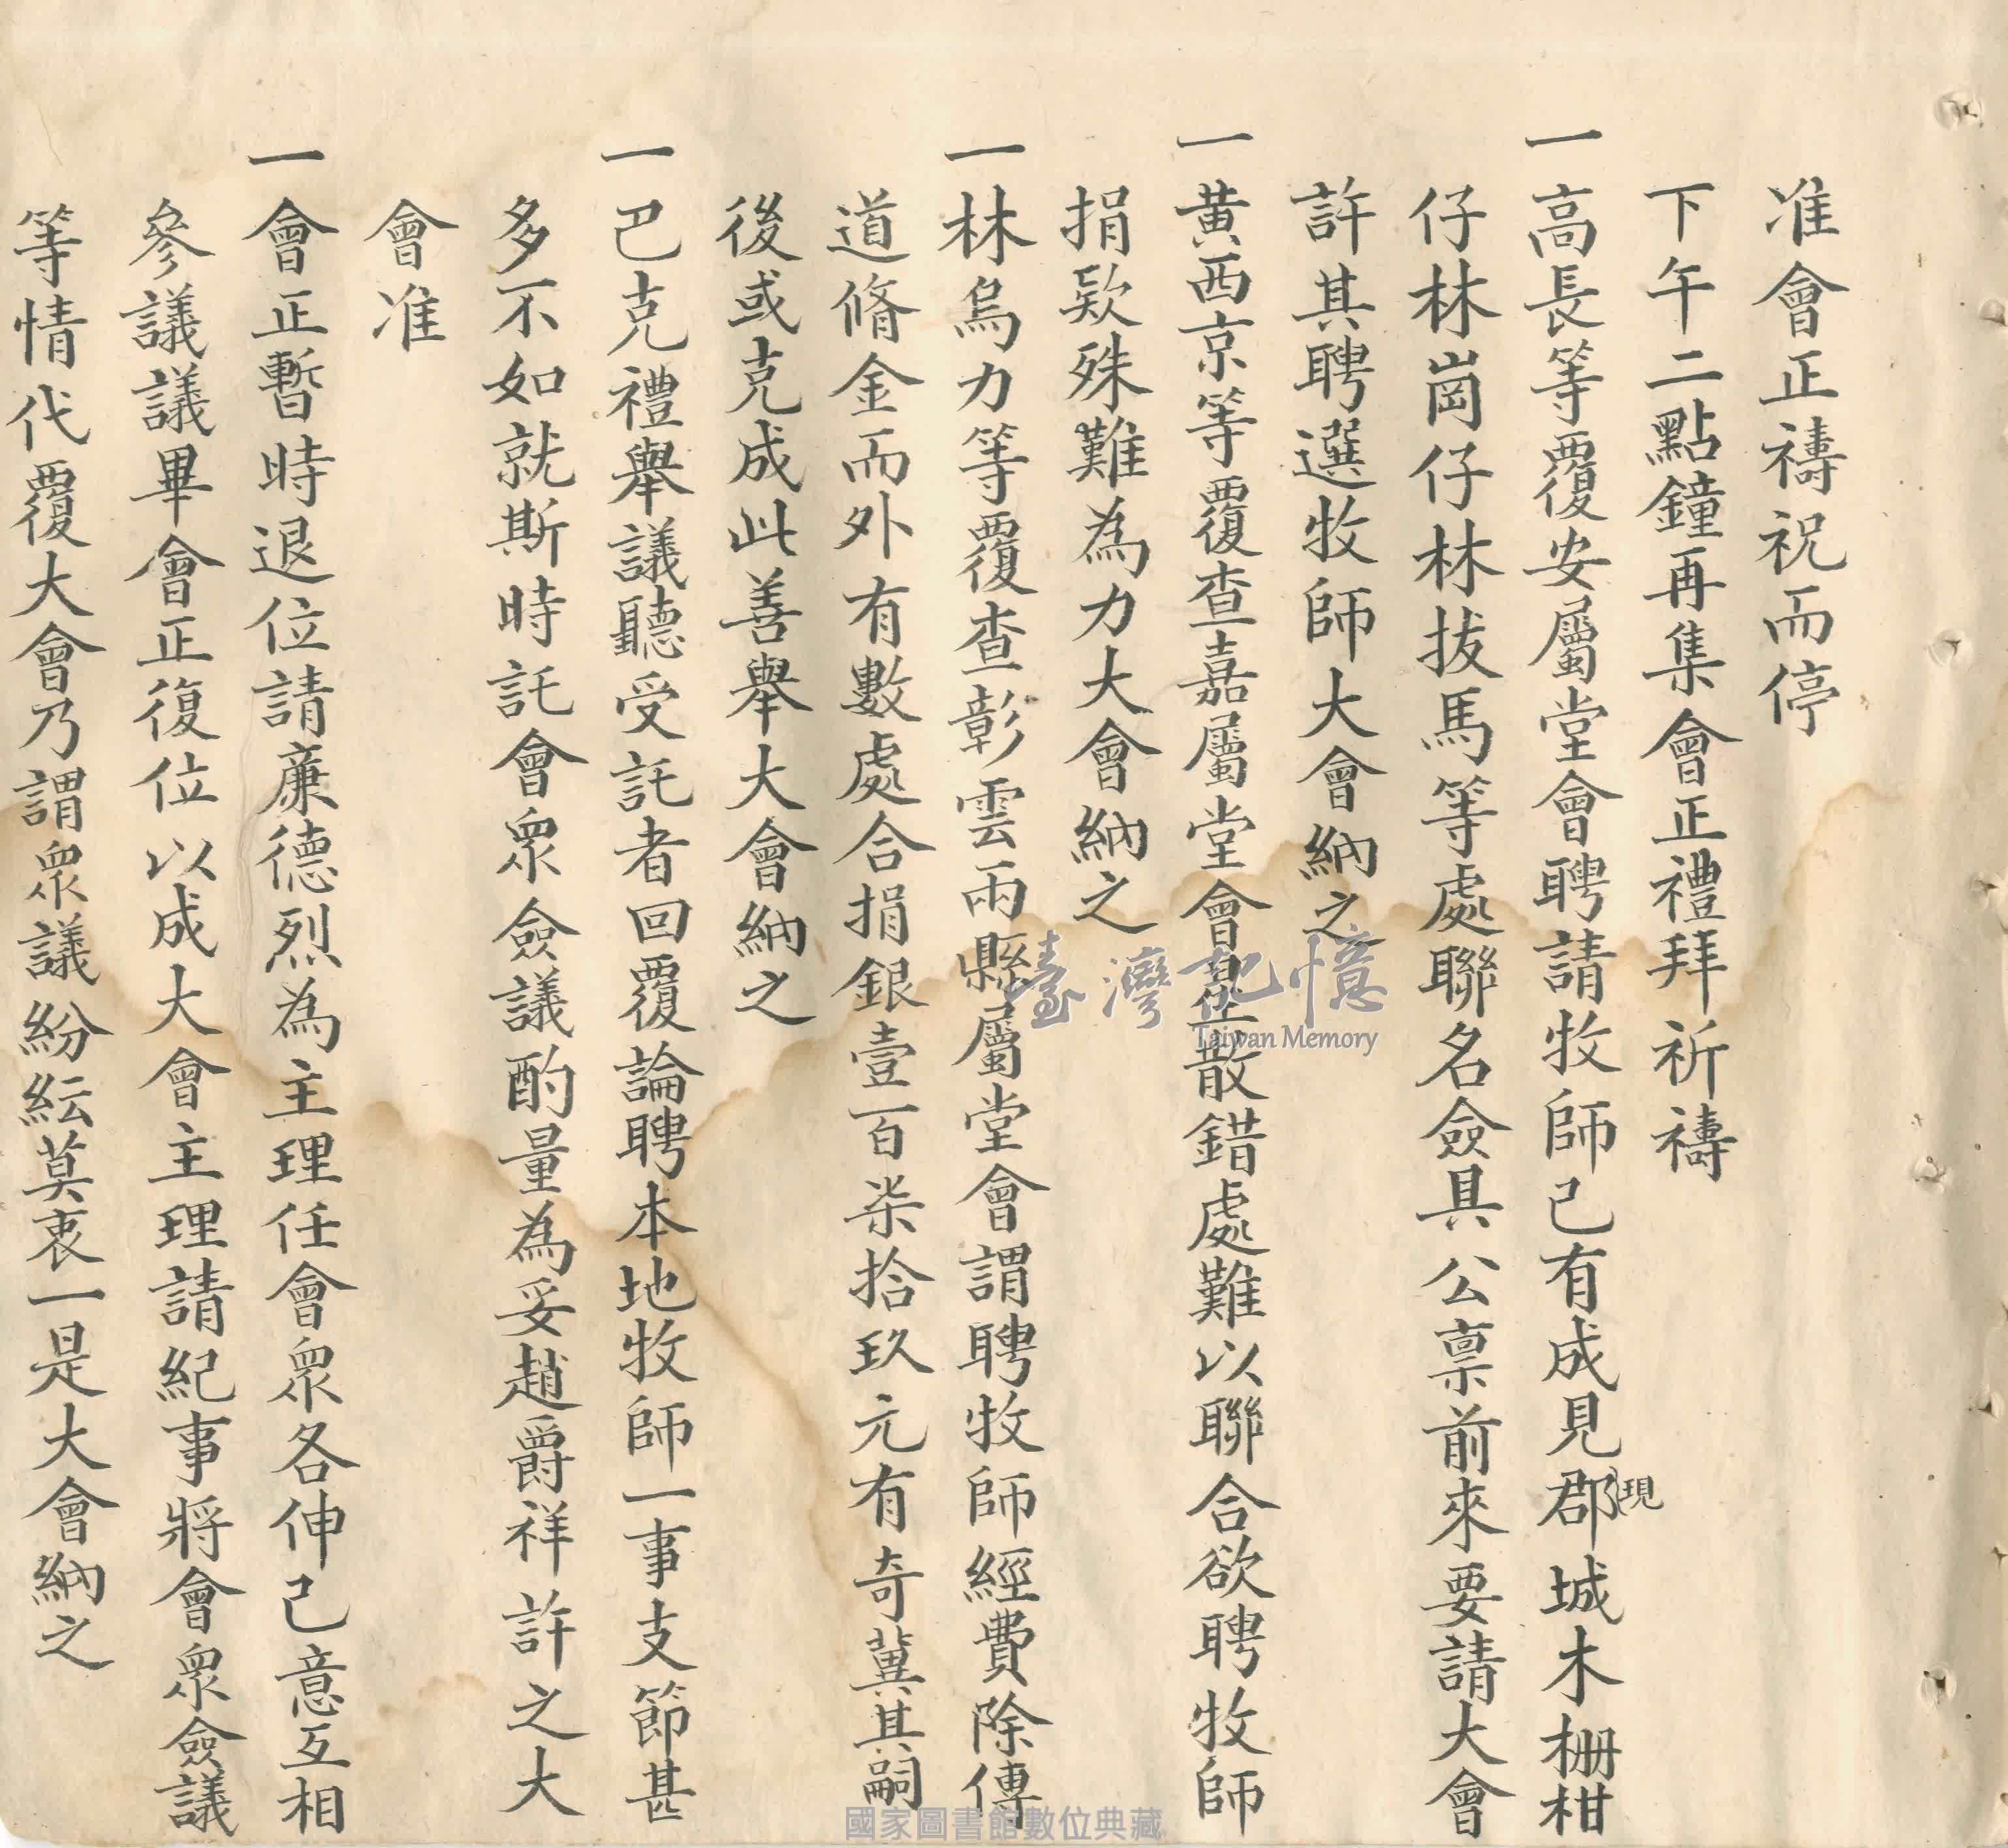 准會正禱祝而停
下午二點鐘再集會正禮拜祈禱
一高長等覆安屬堂會聘請牧師已有成見郡城木柵柑
現
仔林崗仔林拔馬等處聯名僉具公稟前來要請大會
許其聘選牧師大會納之
一黃西京等覆查嘉屬堂會星散錯處難以聯合欲聘牧師
捐欵殊難為力大會納之
一林烏力等覆查彰雲兩縣屬堂會謂聘牧師經費除傳
道脩金而外有數處合捐銀壹百柒拾玖元有奇冀其嗣
後或克成此善舉大會納之
一巴克禮舉議聽受託者回覆論聘本地牧師一事支節甚
多不如就斯時託會眾僉議酌量為妥趙爵祥許之大
會准
一會正暫時退位請廉德烈為主理任會眾各伸己意互相
參議議畢會正復位以成大會主理請紀事將會眾僉議
等情代覆大會乃謂眾議紛紜莫衷一是大會納之
臺灣記憶
Taiwan Memory
國家圖書館數位典藏